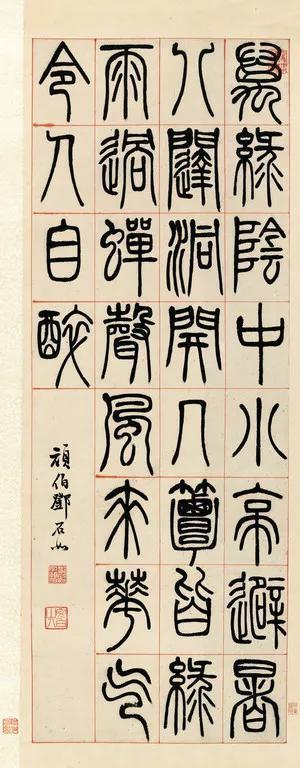 萬綠陰中小亭避暑
八闥洞開几簟皆綠
雨過蟬聲風來華气
令人自醉
頑伯鄧石如